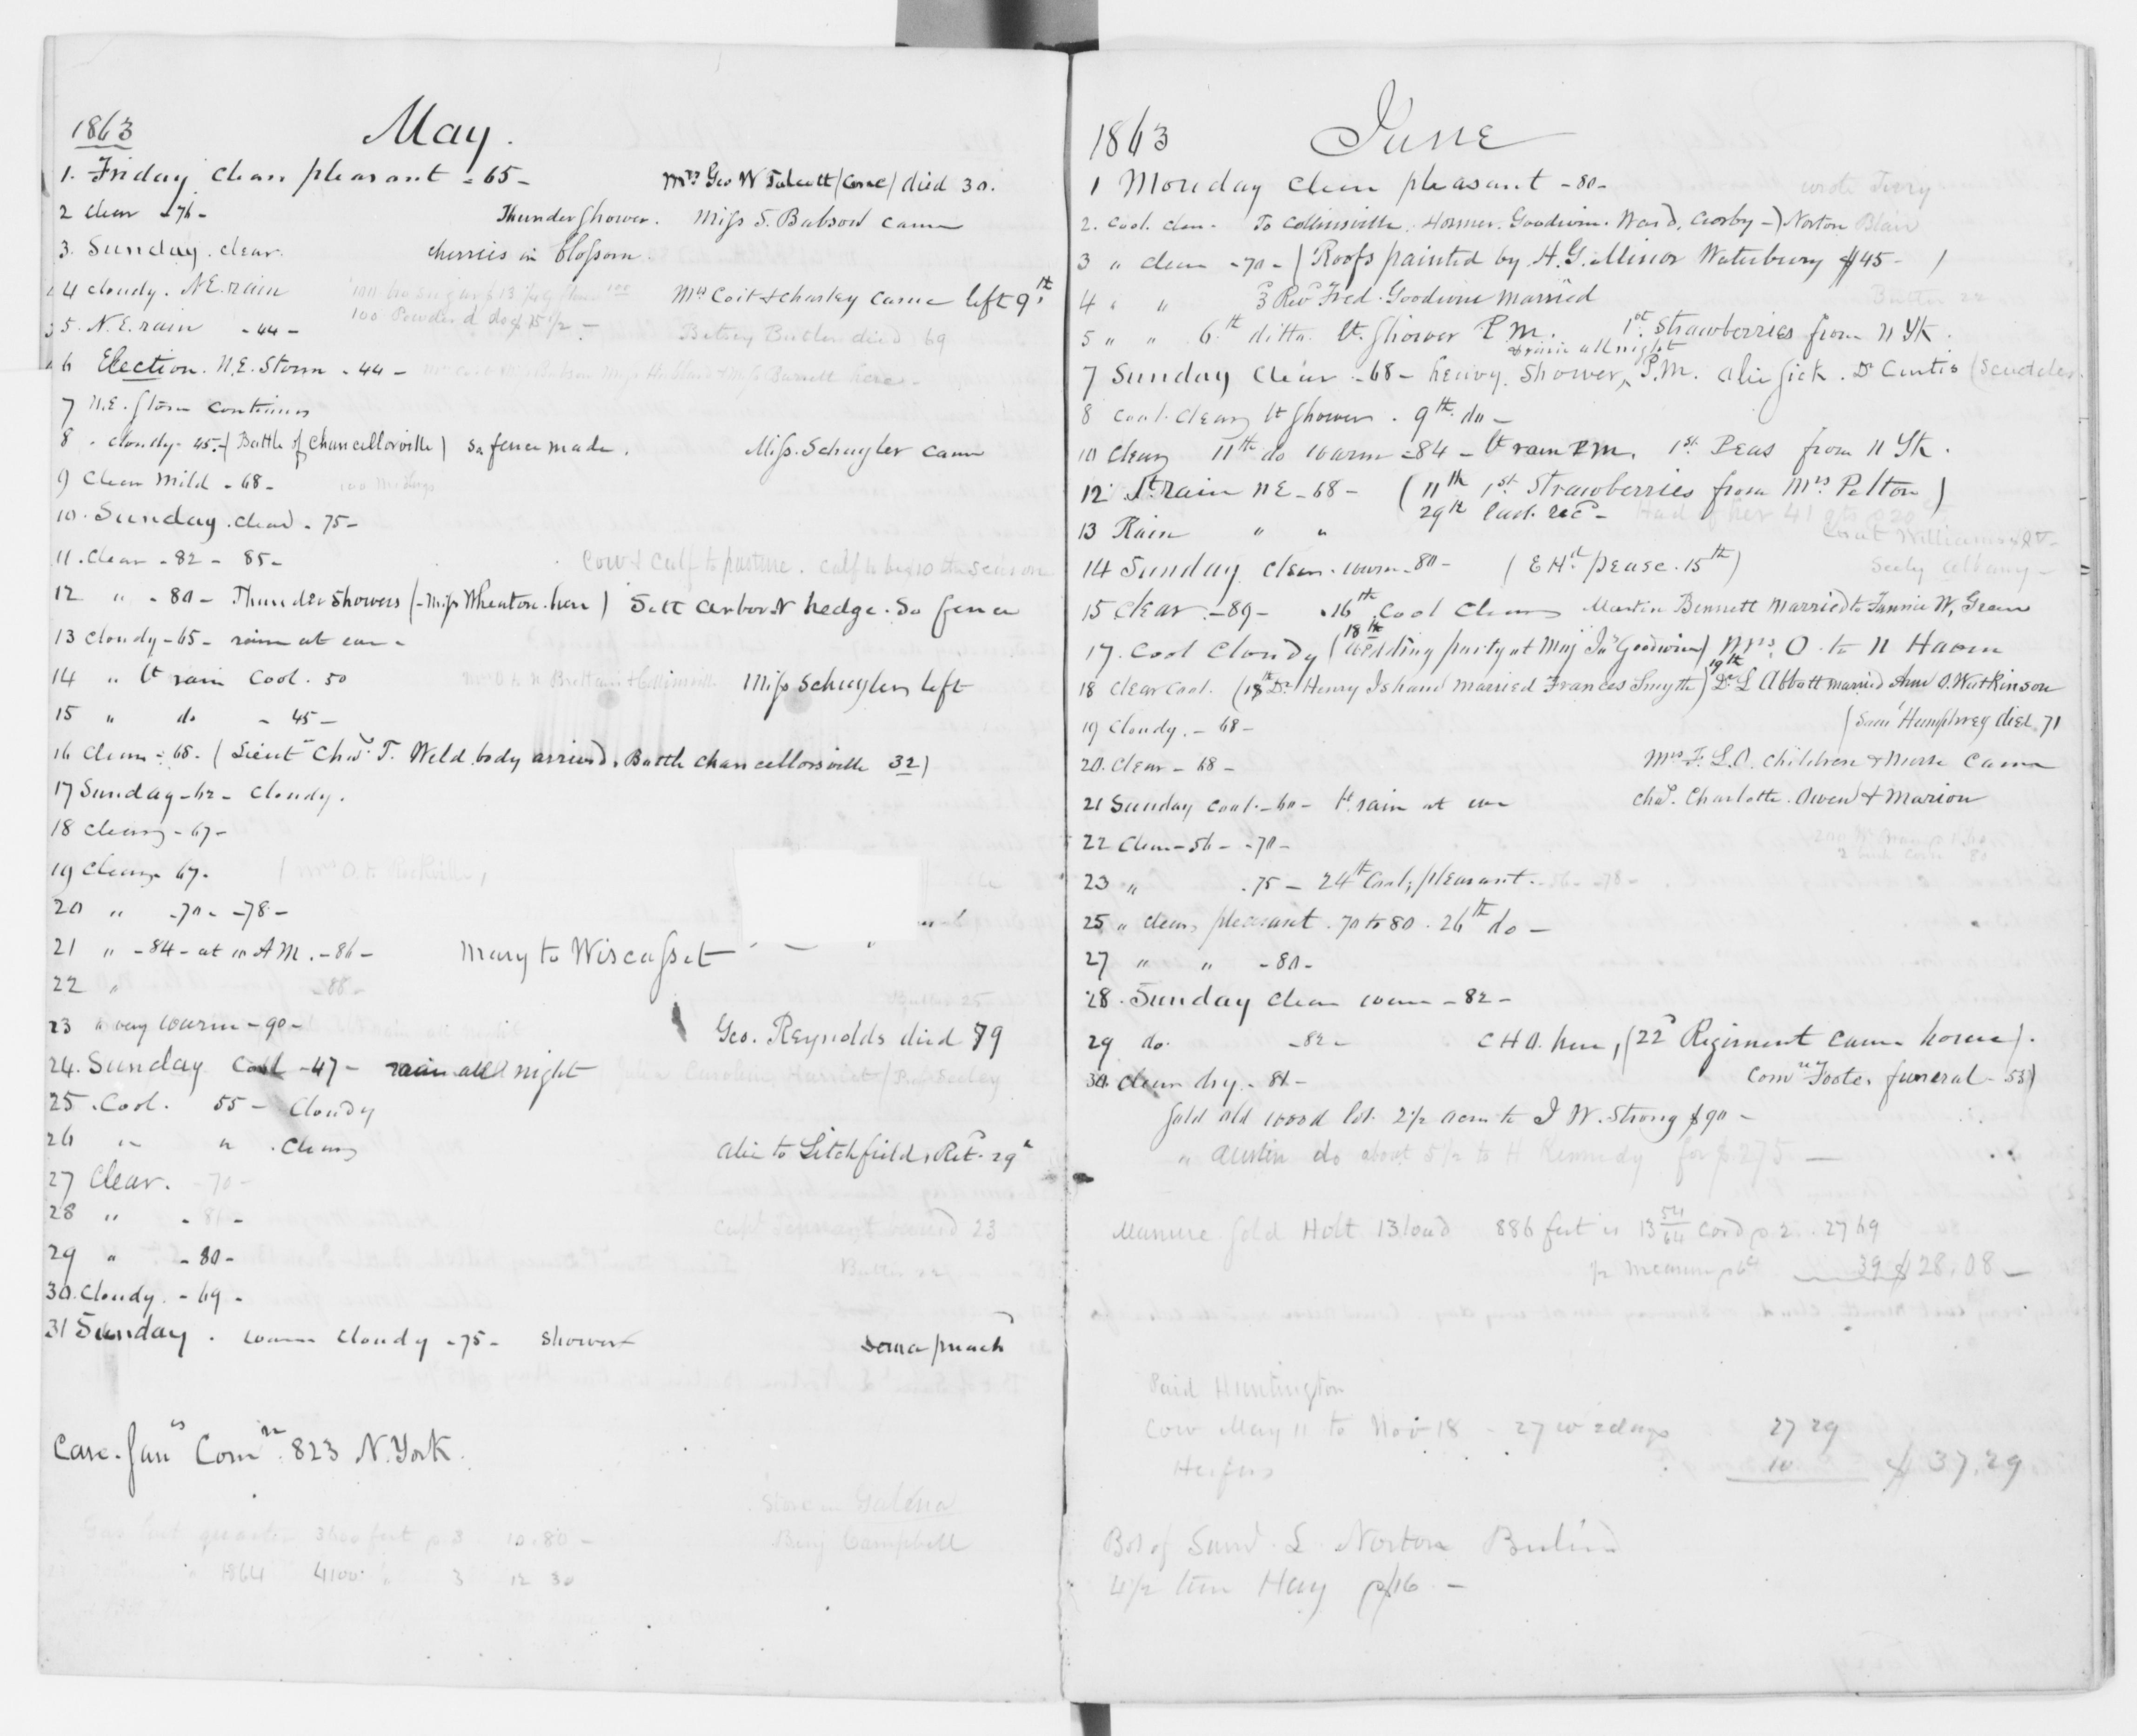 1863 May.
1. Friday. Clear pleasant - 65 - Mrs Geo W Talcott / died 30.
2 clear - 76 - Thunder Shower. Miss S. Babson came
3. Sunday. clear. cherries in blossom.
4 cloudy. N.E. rain Mrs Coit & Charley came left 9th
5. N.E. rain - 44 - 100 Powdered do Betsey Butler died 69
6 Election. N.E. Storm - 44 -
7 N.E. storm continues
8. cloudy - 45 - (Battle of Chancellorville) So fence made. Miss. Schuyler came
9 Clear Mild - 68 -
10. Sunday. clear. 75 -
11. Clear - 82 - 85 - Cow & Calf to pasture.
12 " - 80 - Thunder Showers (- Miss Wheaton here) Sett Arbor N hedge. So fence
13 cloudy - 65 - rain at eve -
14 " lt rain cool. 50 Miss Schuyler left
15 " do - 45 -
16 Clear - 68. (Lieut Chas. T. Weld body arrived. Battle Chancellorsville 32)
17 Sunday - 62 - Cloudy.
18 clear - 67 -
19 clear 67. Mrs O. to Rockville
20 " - 70 - - 78 -
21 " - 84 - at 10 A.M. - 86 - Mary to Wiscasset
22 " - 88 -
23 " very warm - 90 - Geo. Reynolds died 79
24. Sunday Cool - 47 - rain all night Julia Caroline Harriet / Seeley
25. Cool. 55 - Cloudy
26 " " . Clear Alie to Litchfield, Ret. 29th
27 Clear. - 70 -
28 " - 81 -
29 " - 80 -
30. Cloudy. - 69 -
31 Sunday. warm cloudy - 75 - shower
Care. Jans Comn. 823 N. York.
Store in Galena
Gas last quarter 3600 feet p 3 10.80 - Benj Campbell
1864 4100 " 3 12 30
1863 June
1 Monday clear pleasant - 80 -
2. Cool. clear. To Collinsville. Hosmer. Goodwin. Ward. Crosby -) Norton Blair
3 " clear - 70 - (Roofs painted by H. G. Minor Waterbury $45 - )
4 " " 3d Revd Fred. Goodwin married
5 " " 6th ditto lt. shower P.M. 1st. Strawberries from N Yk.
& rain all night
7 Sunday Clear - 68 - heavy shower P.M. Alie sick. Dr Curtis
8 Cool. clear lt shower. 9th do -
10 clear 11th do warm - 84 - lt rain P.M. 1st. Peas from N Yk.
12 lt. rain NE - 68 - (11th 1st. Strawberries from Mrs Pelton)
13 Rain " "
14 Sunday. clear. warm - 80 - (E Hd. Pease. 15th)
15 clear - 89 - 16th Cool Clear Martin Bennett married to Fannie W. Green
18th
17. Cool Cloudy (Wedding party at Maj Jas Goodwin) Mrs. O. to N Haven
19th
18 Clear cool. (18th Dr Henry Isham married Frances Smyth) Dr L Abbott married Ann O. Watkinson
19 Cloudy. - 68 - (Saml Humphrey died 71
20. Clear - 68 - Mrs F. L. O. children & Nurse came
21 Sunday cool - 60 - lt. rain at eve Chas. Charlotte. Owen & Marion
22 Clear - 56 - - 70 -
23 " . 75 - 24th Cool, pleasant. - 56 - - 78 -
25 " clear pleasant. 70 to 80. 26th do -
27 " " - 80 -
28. Sunday clear warm - 82 -
29 do. - 82 - C H O. here, (22d Regiment came home).
30. clear dry - 81 - Foote funeral - 53)
Sold old wood lot. 2 1/2 acre to J W. Strong $90 -
" Austin do about 5 1/2 to H Kennedy for $275 -
Manure Sold Holt 13 load 886 feet is 13 54/64 cord p 2. 27 69
39 $28.08 -
Paid Huntington
Cow May 11 to Nov 18 - 27 w 2 days 27 29
Heifers 10 $37.29
Bot of Saml. L. Norton Berlin
4 1/2 tun Hay p $16 -